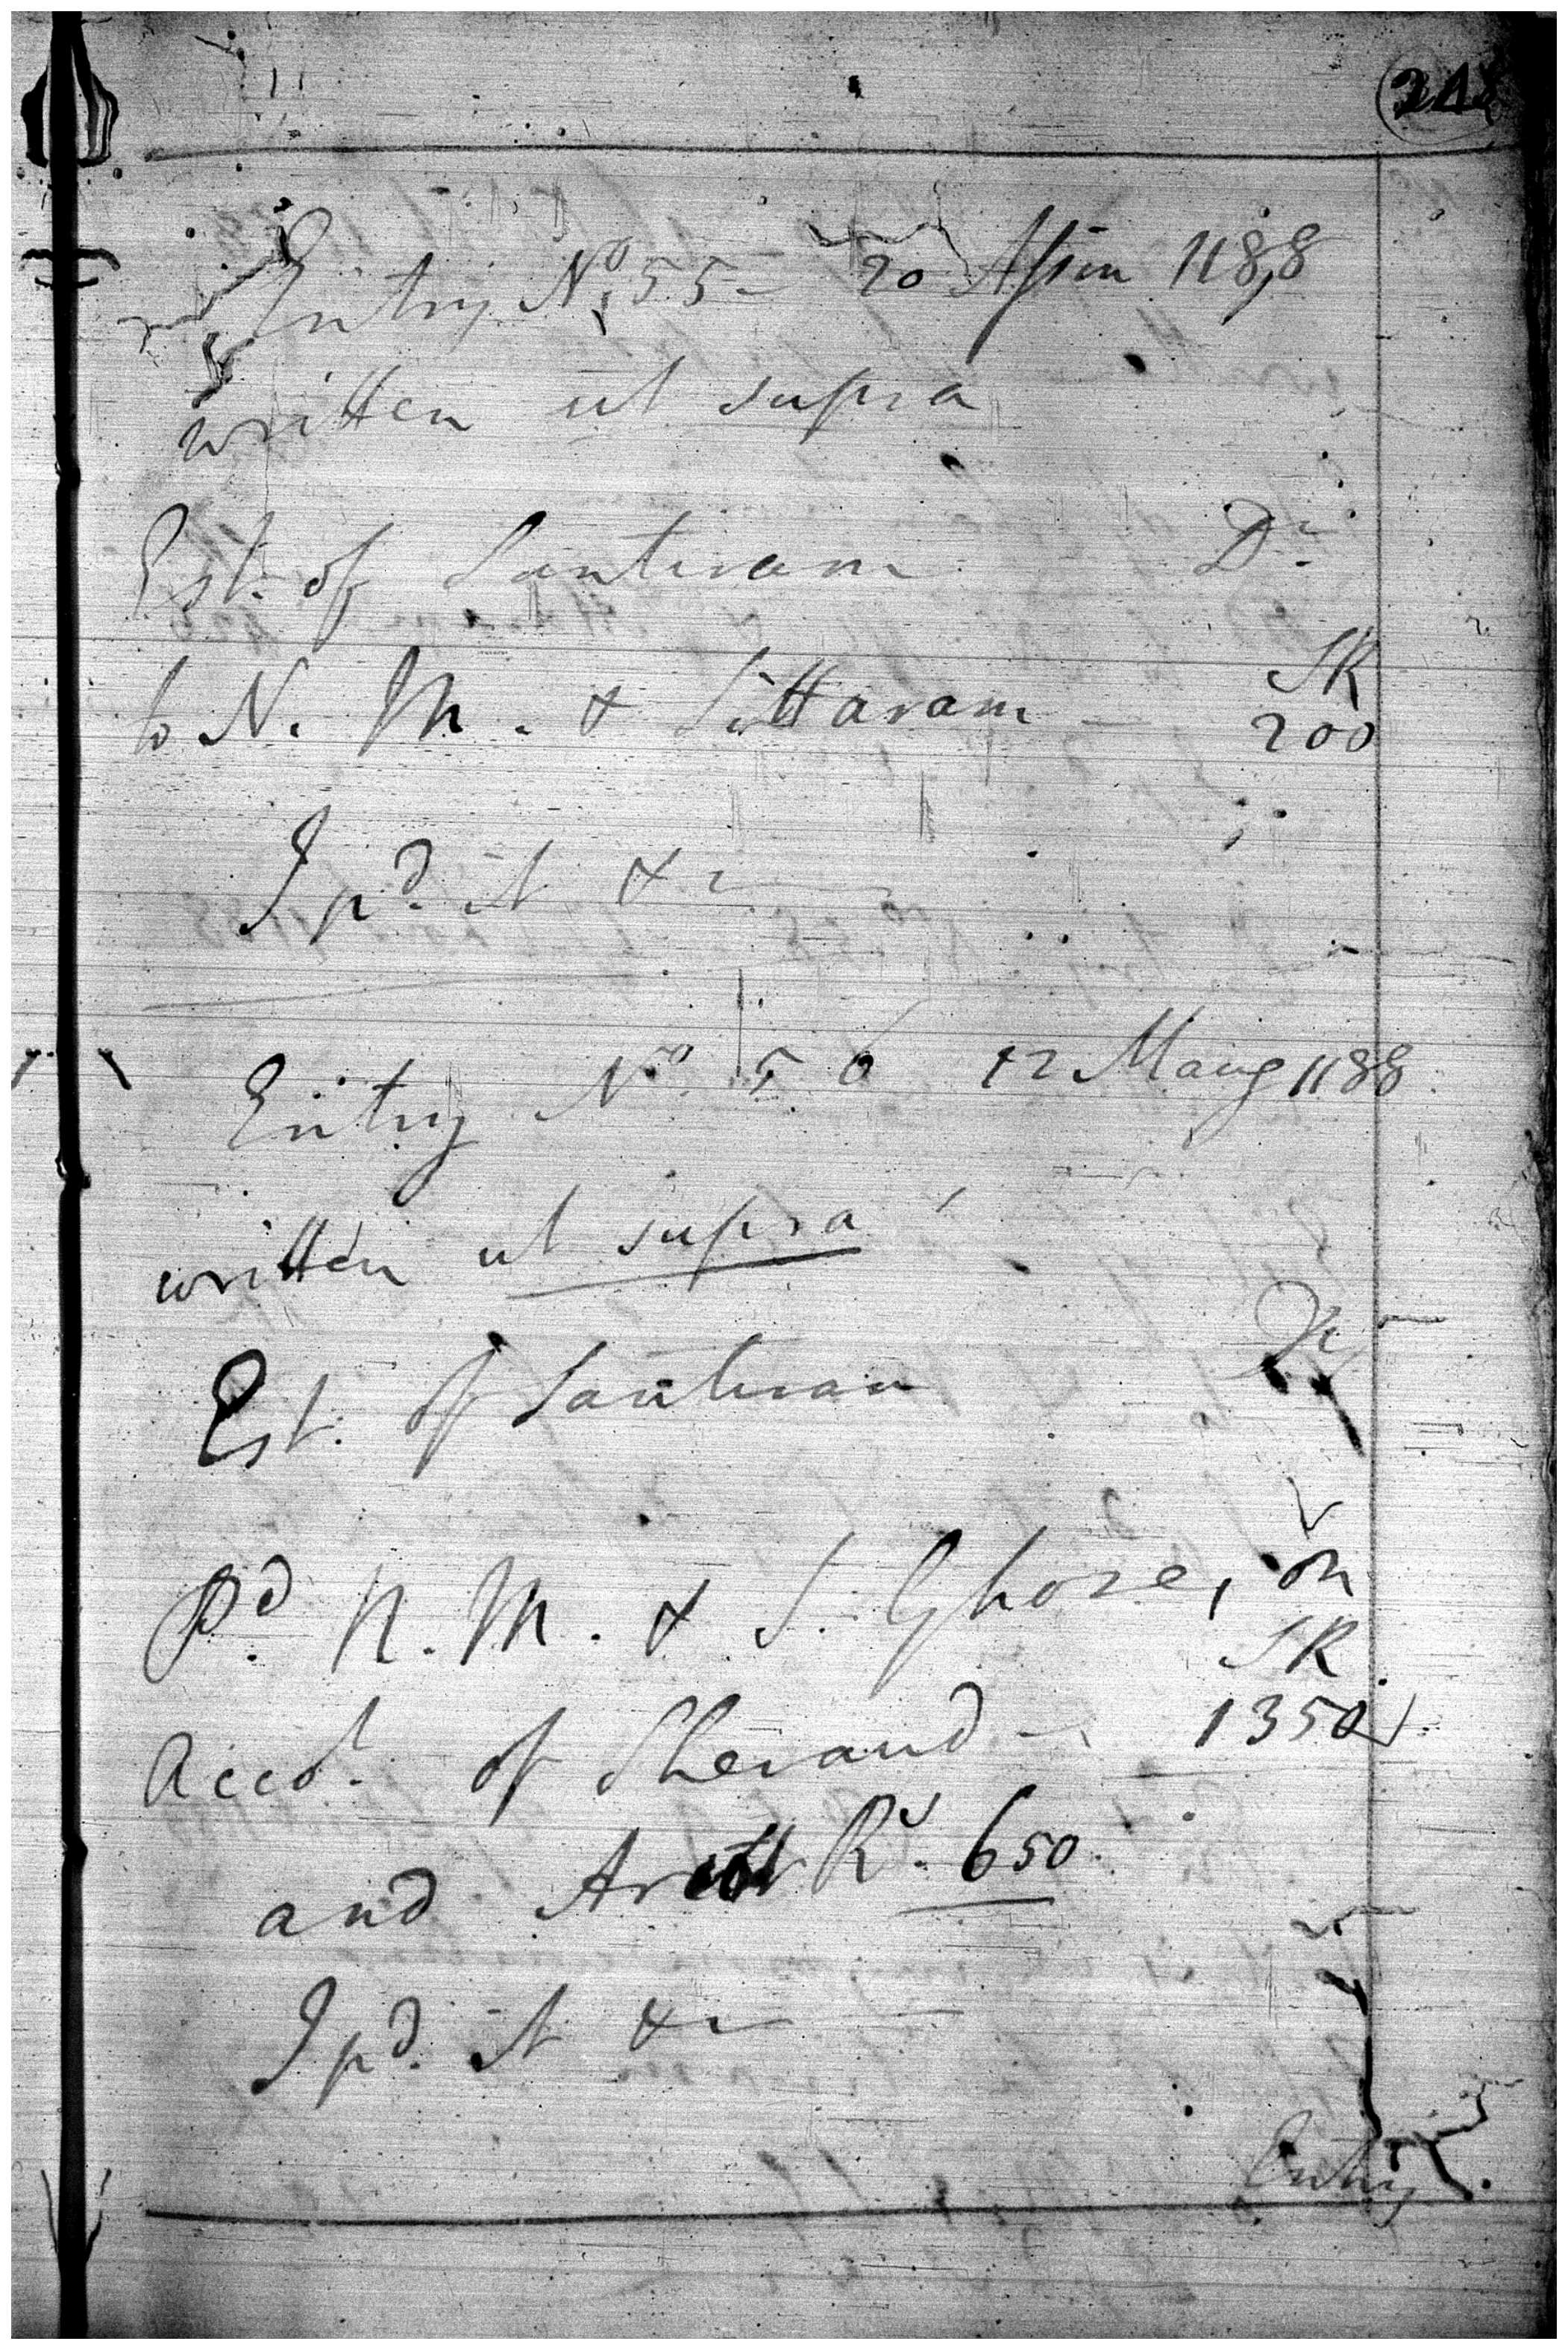 Entry No. 55 - 20 Assin 1188
written ut supra
Est. of Santiram Dr.
SR
to N. M. & Sittaram - 200
I pd. it &c
Entry No. 56 12 Maug 1188
written ut supra
Est. of Santiram Dr
Pd. N. M. & S. Ghose, on
SR
Acct. of Sheraud - 1350
and Arcot Rs. 650
I pd. it &c
Entry